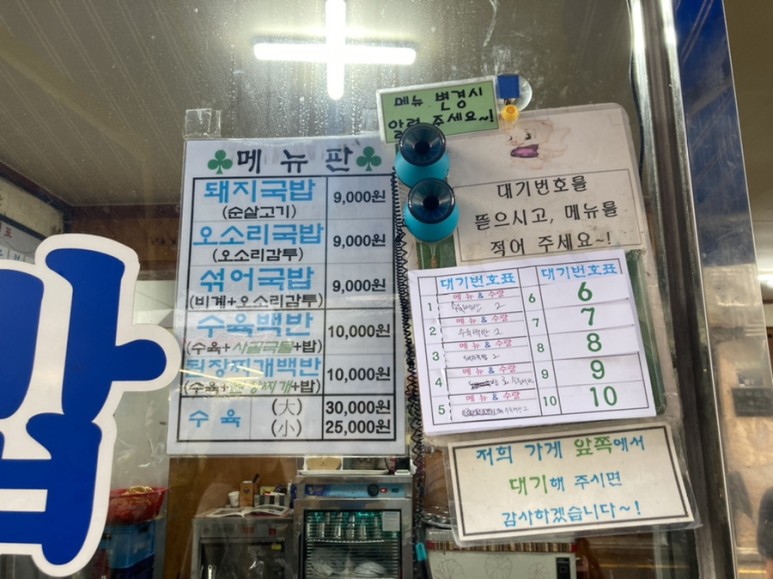 메뉴 변경시
알려 주세요~!
메뉴판
돼지국밥 9,000원
(순살고기)
오소리국밥 9,000원
(오소리감투)
섞어국밥 9,000원
(비계+오소리감투)
수육백반 10,000원
(수육+사골국물+밥)
된장찌개백반 10,000원
(수육+된장찌개+밥)
수육 (大) 30,000원
(小) 25,000원
대기번호를
뜯으시고, 메뉴를
적어 주세요~!
대기번호표 대기번호표
메뉴 & 수량
1 2
메뉴 & 수량
2 수육백반 2
메뉴 & 수량
3 2
메뉴 & 수량
4
메뉴 & 수량
5
6 6
7 7
8 8
9 9
10 10
저희 가게 앞쪽에서
대기해 주시면
감사하겠습니다~!
밥